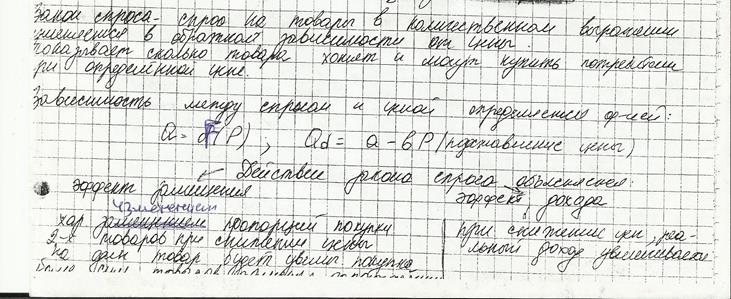 Закон спроса - спрос на товары в количественном выражении
изменяется в обратной зависимости от цены.
Показывает сколько товара хотят и могут купить потребители
при определённой цене.
Зависимость между спросом и ценой определяется ф-ией:
Q = F(P) ; Qd = a - bP (подставление цены)
Действие закона спроса объясняется:
эффект замещения
эффект дохода
изменением
хар замещением пропорций покупки
2-х товаров при снижении цены
на дан товар будет увелич покупка
при снижении цен, реа-
льный доход увеличивается